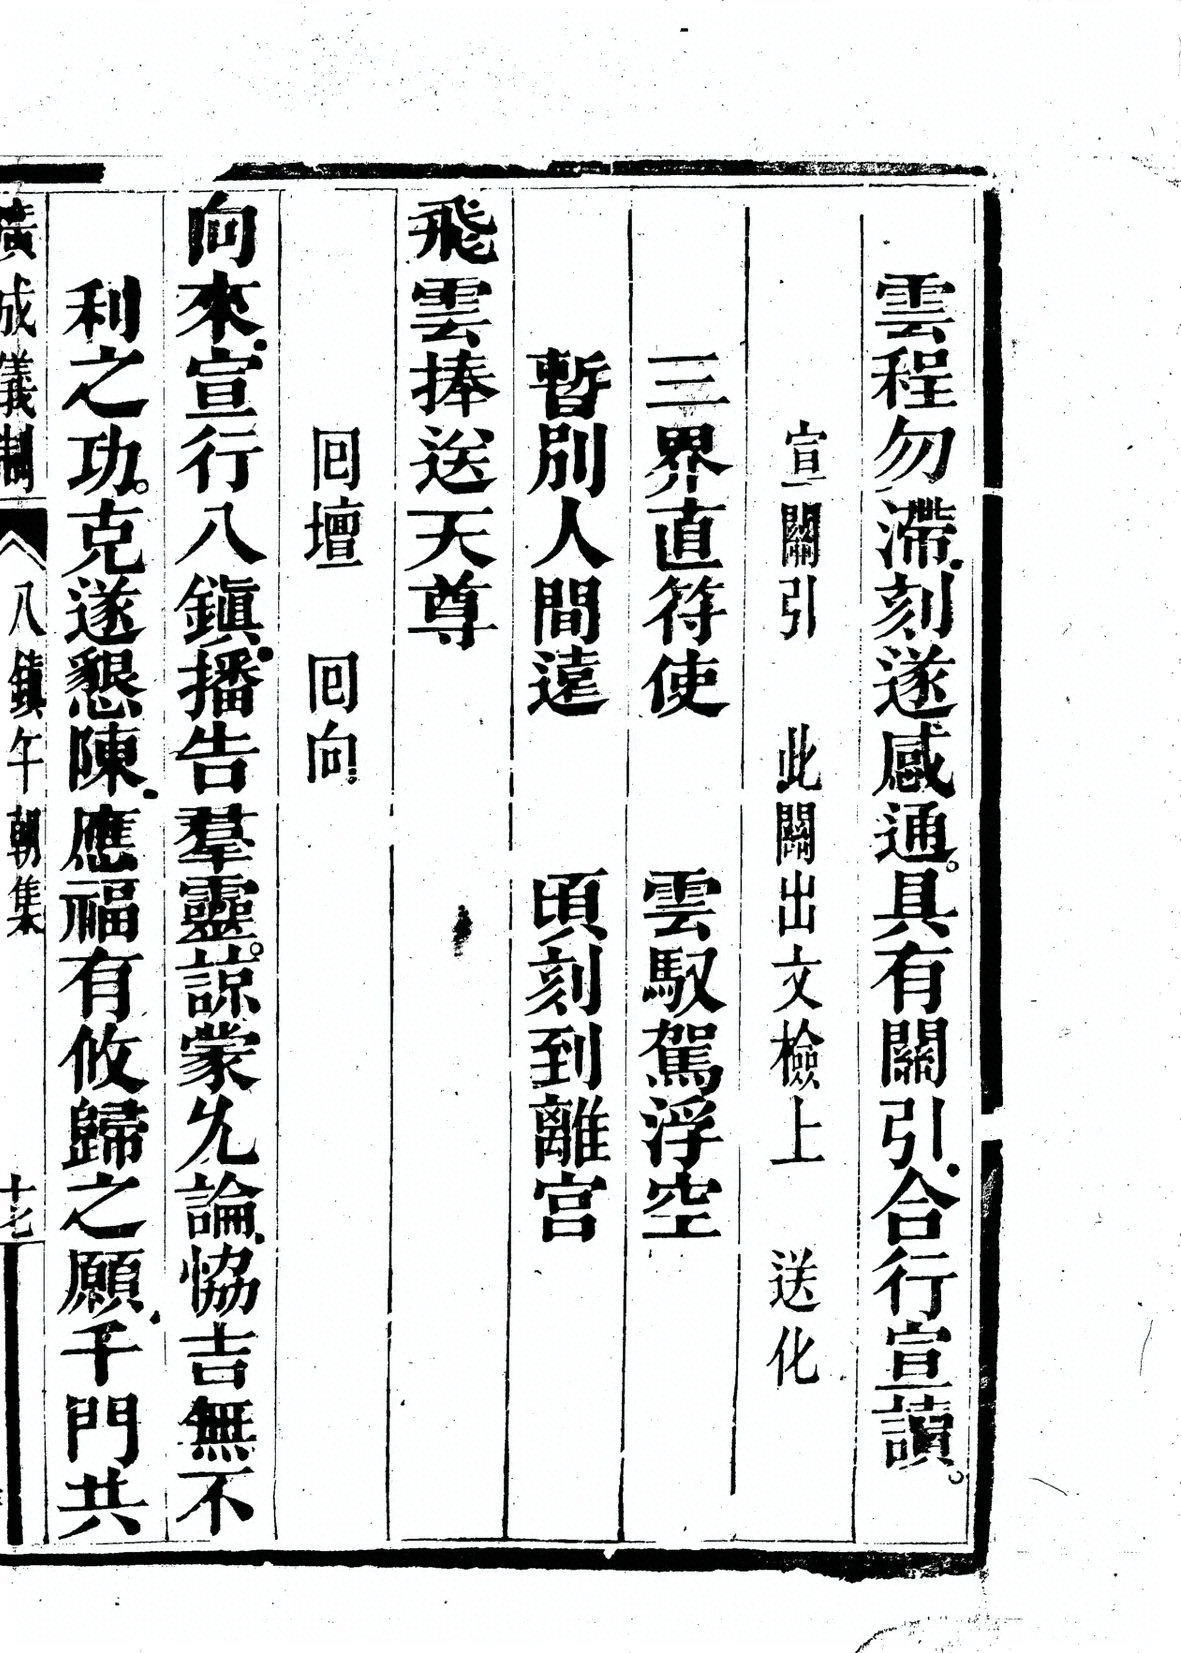 雲程勿滯刻遂感通。具有關引合行宣讀。
宣關引　此關出文檢上　送化
三界直符使　雲馭駕浮空
暫別人間遠　頃刻到離宮
飛雲捧送天尊
回壇　回向
向來宣行八鎮播告羣靈。諒蒙允諭恊吉無不
利之功。克遂懇陳應福有攸歸之願千門共
廣成儀制　八鎮午朝集　十七